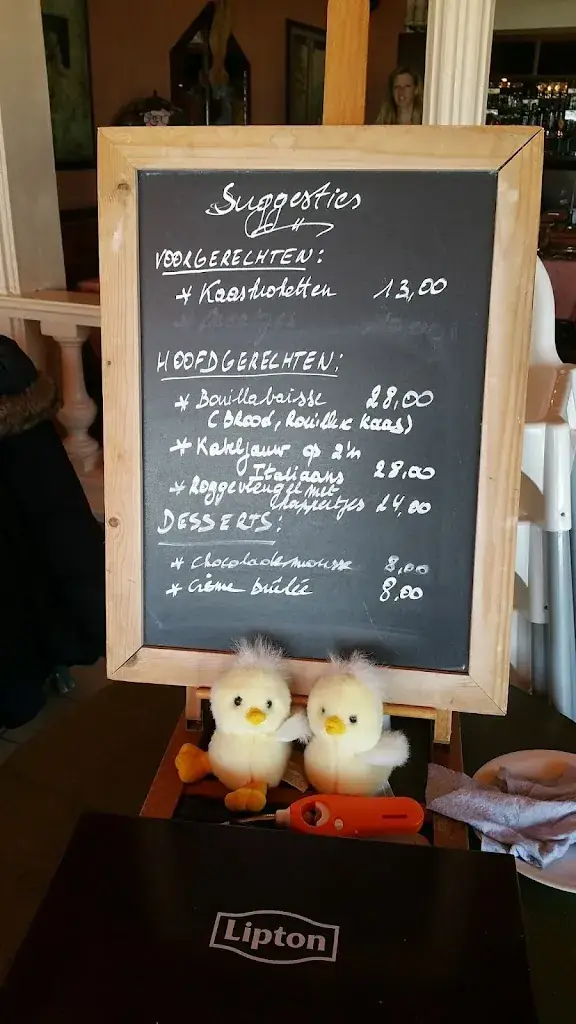 Suggesties
VOORGERECHTEN:
* Kaaskroketten 13,00
HOOFDGERECHTEN:
* Bouillabaisse 28,00
(Brood, Rouille & Kaas)
* Kabeljauw op z'n
Italiaans 28,00
* Roggevleugel met
kappertjes 24,00
DESSERTS:
* chocolademousse 8,00
* Crème brûlée 8,00
Lipton